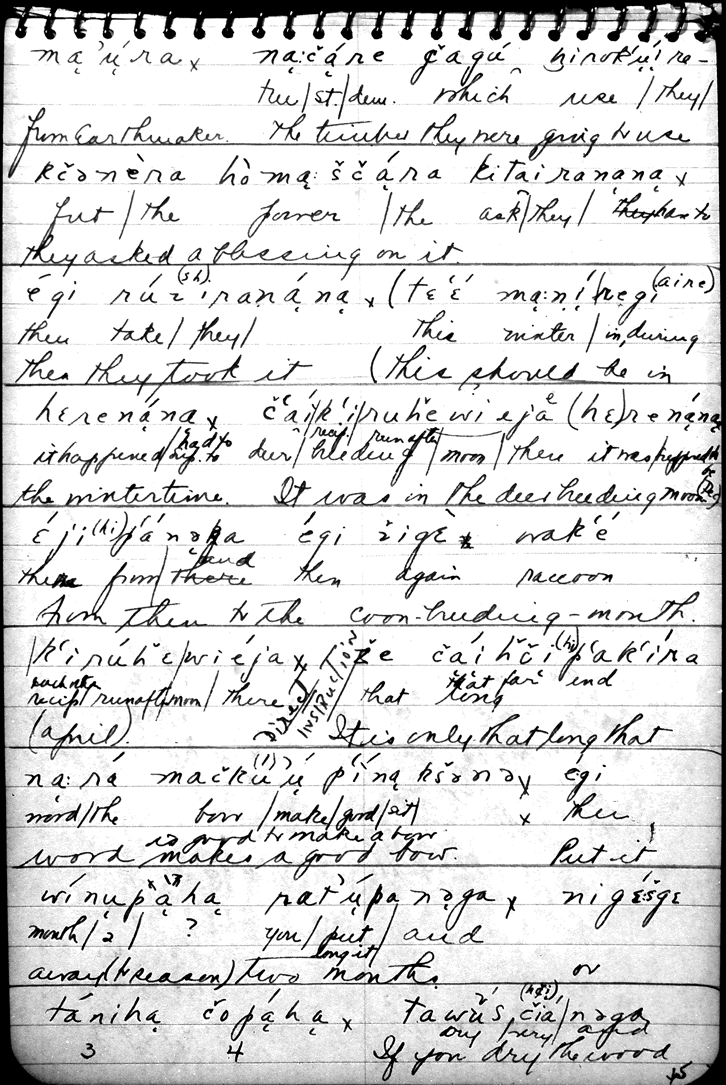 mą’ų́ra x ną:čą́re čagú hirok’ų́ įra-
tree / st. / dem. which use / they /
from Earthmaker. The timber they were going to use
kčənèra hòmą: ščą́ra kitairanąną x
fut / the power / the ask / they / has to
they asked a blessing on it.
égi rúz (sh) iranąną́ x (tɛ’é mą:ní / regi (aire)
then take / they / this winter / in, during
then they took it (this should be in
hɛrenąną x čáí / k’i / ruhčewiejà (hɛ) renąną
it happened / had to deer / recip. breeding / run after / moon / then it was / happened
the wintertime. It was in the deer breeding moon
éji (hi) p’ánəka égi žigɛ̀ x wak’é
then from / there and then again raccoon
from then to the coon-breeding-month.
/ k’irúhčɛ / wiéja x že čáíhči (hi) p’ak’íra
recip / run after / moon / there that long that far end
(april). Direct Instruction It is only that long that
ną:rá mačkú (í) ’ų p’íną kšənə x égi
wood / the bow / make / good / sit / x then
is good to make a bow
word makes a good bow. Put it
wínųp’ąhą rat’úpanəga x nigɛ́:šgɛ
month / 2 / ? you / put long it / and
away (to season) two months or
tánihą čopąhą x tawús (hči) čiá / nəga
3 4 dry / very / and
If you dry the wood
15